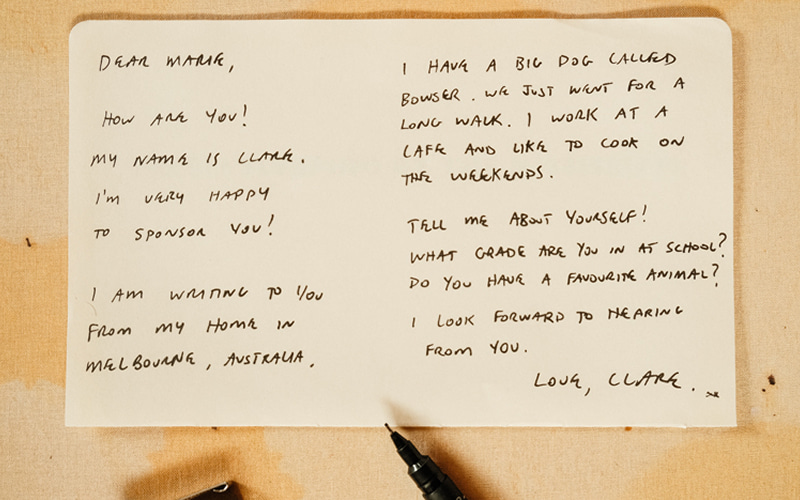 DEAR MARIE,
HOW ARE YOU!
MY NAME IS CLARE.
I'M VERY HAPPY
TO SPONSOR YOU!
I AM WRITING TO YOU
FROM MY HOME IN
MELBOURNE, AUSTRALIA.
I HAVE A BIG DOG CALLED
BOWSER. WE JUST WENT FOR A
LONG WALK. I WORK AT A
CAFE AND LIKE TO COOK ON
THE WEEKENDS.
TELL ME ABOUT YOURSELF!
WHAT GRADE ARE YOU IN AT SCHOOL?
DO YOU HAVE A FAVOURITE ANIMAL?
I LOOK FORWARD TO HEARING
FROM YOU.
LOVE, CLARE.